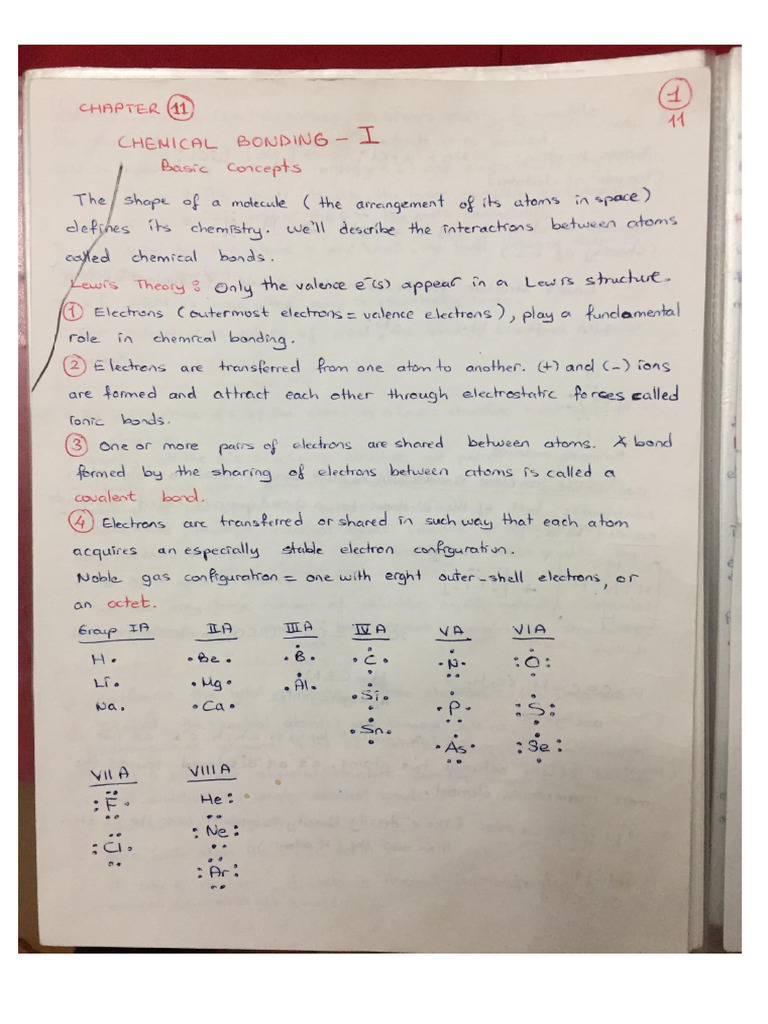 CHAPTER 11
1
11
CHEMICAL BONDING - I
Basic Concepts
The shape of a molecule (the arrangement of its atoms in space)
defines its chemistry. We'll describe the interactions between atoms
called chemical bonds.
Lewis Theory: Only the valence e⁻(s) appear in a Lewis structure.
① Electrons (outermost electrons = valence electrons), play a fundamental
role in chemical bonding.
② Electrons are transferred from one atom to another. (+) and (-) ions
are formed and attract each other through electrostatic forces called
ionic bonds.
③ One or more pairs of electrons are shared between atoms. A bond
formed by the sharing of electrons between atoms is called a
covalent bond.
④ Electrons are transferred or shared in such way that each atom
acquires an especially stable electron configuration.
Noble gas configuration = one with eight outer-shell electrons, or
an octet.
Group IA IIA IIIA IVA VA VIA
H Be B C N O
Li Mg Al Si P S
Na Ca Sn As Se
VIIA VIIIA
F He
Cl Ne
Ar